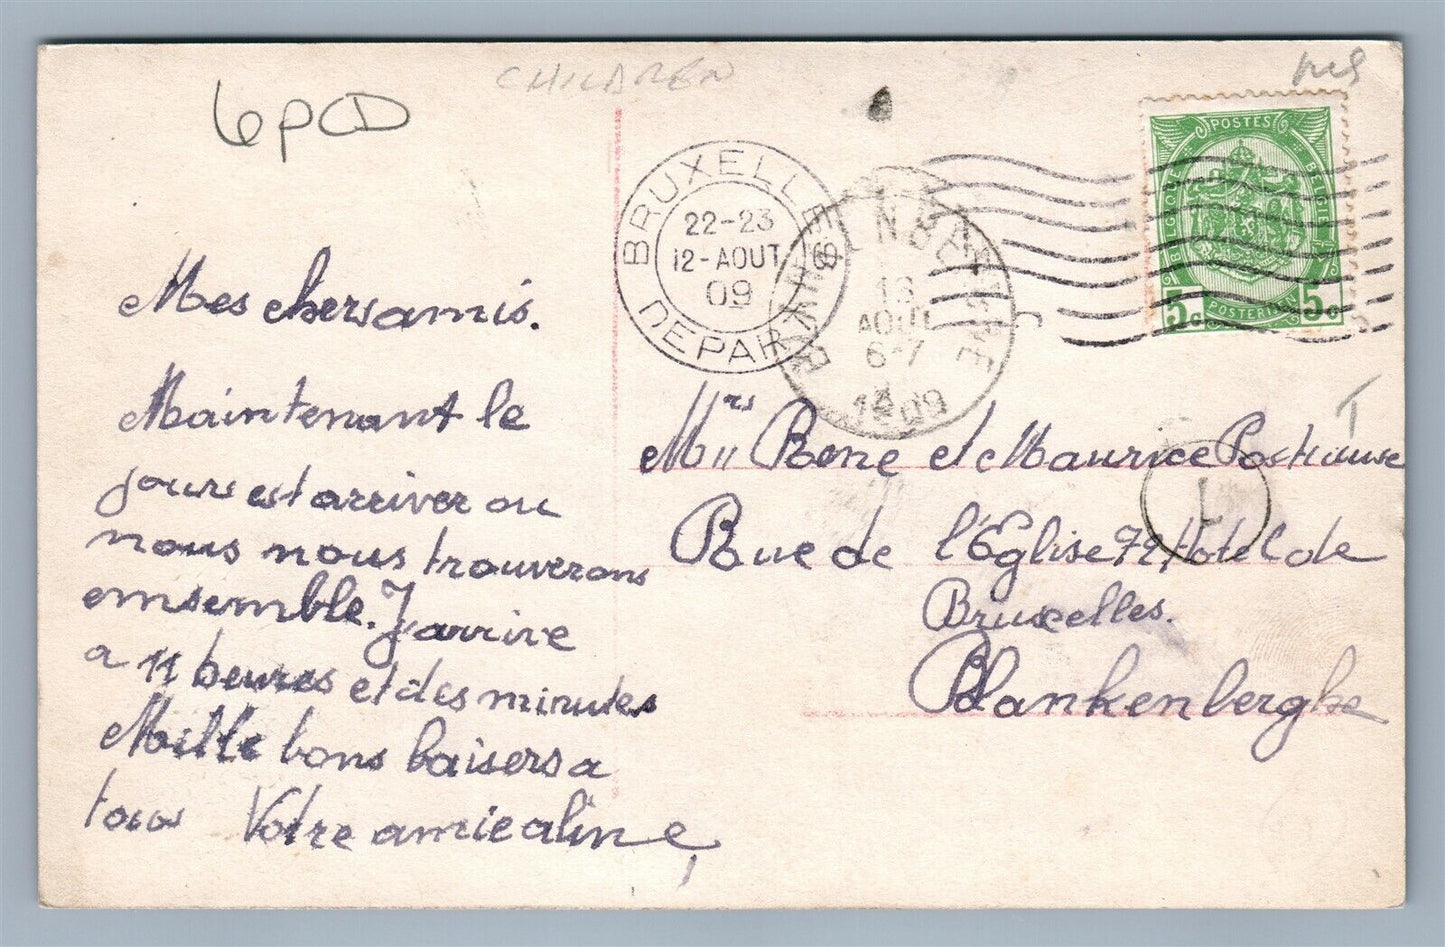 CHILDREN
6PCD
BRUXELLES
22-23
12-AOUT
09
DEPART
13
AOUT
6-7
1909
POSTES
BELGIQUE
BELGIE
5c
POSTERIJEN
5c
Mes chersamis.
Maintenant le
jours est arriver ou
nous nous trouverons
emsemble. J'arrive
a 11 heures et des minutes
Mille bons baisers a
tous Votre amie aline
Mrs
Mll Rene et Maurice
Rue de l'Eglise 72 Hotel de
Bruxelles.
Blankenberghe
1
T